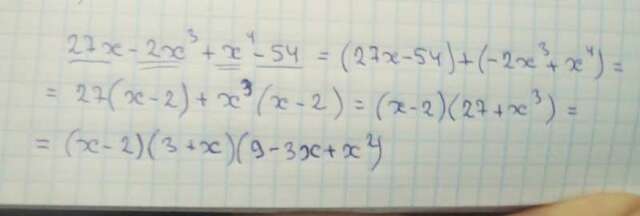 27x - 2x³ + x⁴ - 54 = (27x - 54) + (-2x³ + x⁴) =
= 27(x - 2) + x³(x - 2) = (x - 2)(27 + x³) =
= (x - 2)(3 + x)(9 - 3x + x²)